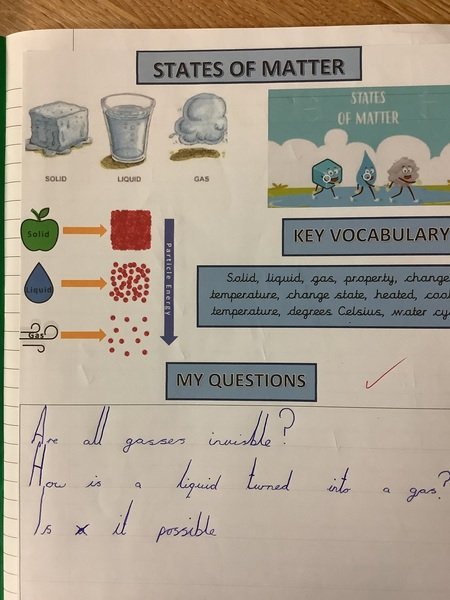 STATES OF MATTER
STATES
OF MATTER
SOLID LIQUID GAS
Solid
KEY VOCABULARY
Liquid
Particle Energy
Solid, liquid, gas, property, change
temperature, change state, heated, cool
temperature, degrees Celsius, water cy
Gas
MY QUESTIONS
Are all gasses invisble?
How is a liquid turned into a gas?
Is it possible